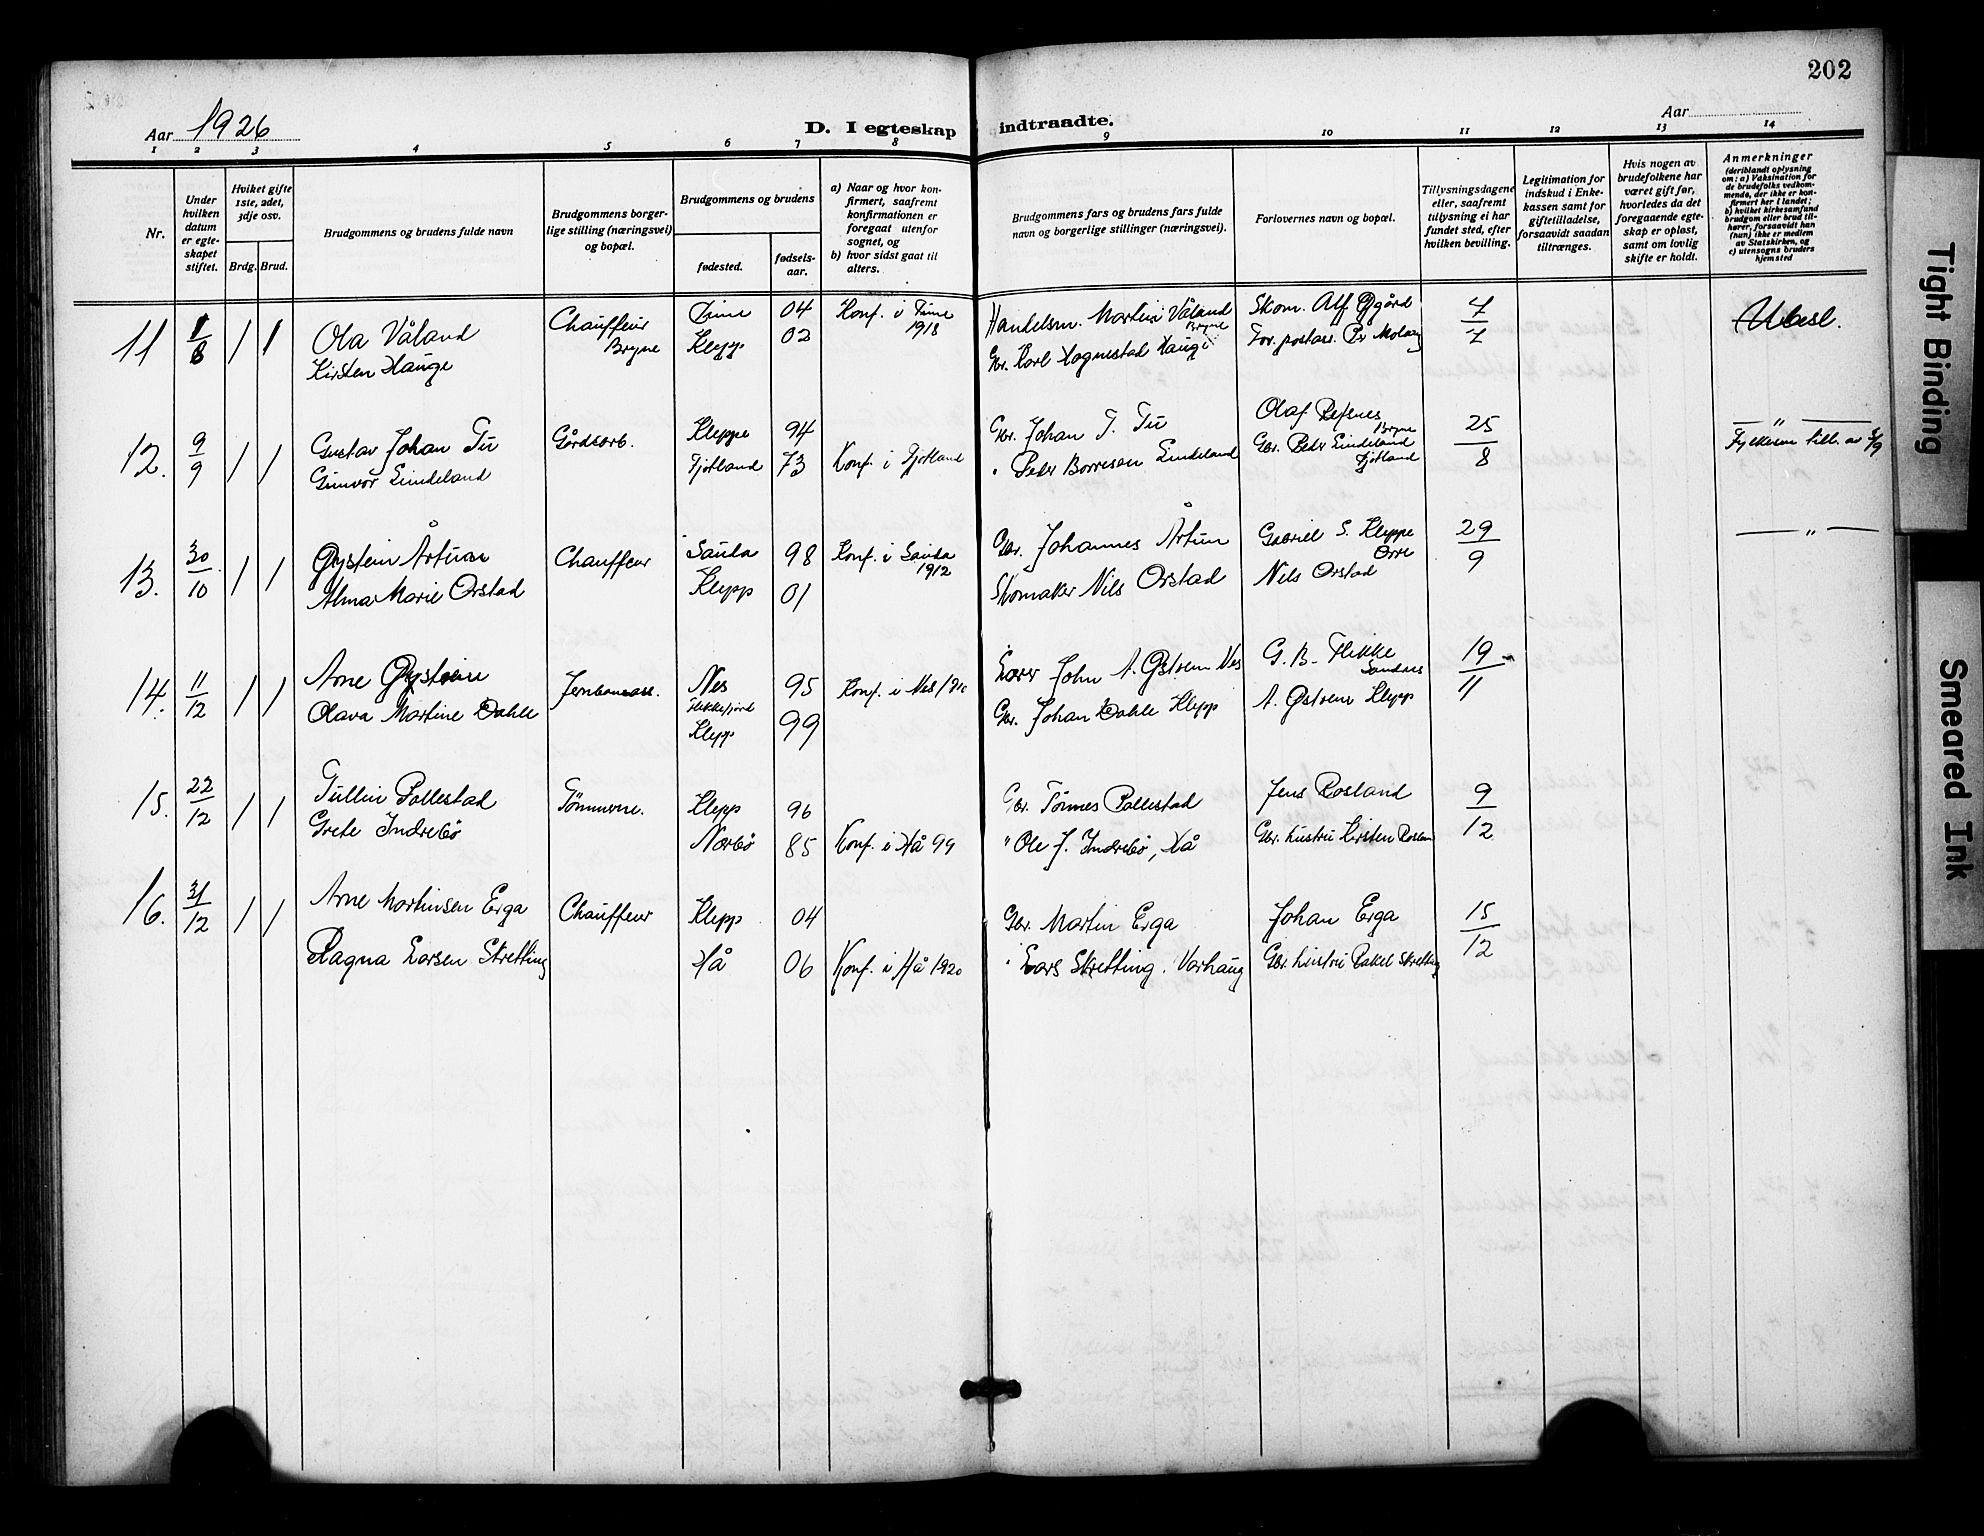 202
Aar 1926
D. I egteskap indtraadte.
Aar
1 2 3 4 5 6 7 8 9 10 11 12 13 14
Nr.
Under hvilken datum er egteskapet stiftet.
Hvilket gifte 1ste, 2det, 3dje osv.
Brdg. Brud.
Brudgommens og brudens fulde navn
Brudgommens borgerlige stilling (næringsvei) og bopæl.
Brudgommens og brudens
fødested.
fødselsaar.
a) Naar og hvor konfirmert, saafremt konfirmationen er foregaat utenfor sognet, og
b) hvor sidst gaat til alters.
Brudgommens fars og brudens fars fulde navn og borgerlige stillinger (næringsvei).
Forlovernes navn og bopæl.
Tillysningsdagene eller, saafremt tillysning ei har fundet sted, efter hvilken bevilling.
Legitimation for indskud i Enkekassen samt for giftetilladelse, forsaavidt saadan tiltrænges.
Hvis nogen av brudefolkene har været gift før, hvorledes da det foregaaende egteskap er opløst, samt om lovlig skifte er holdt.
Anmerkninger (deriblandt oplysning om: a) Vaksination for de brudefolks vedkommende, der ikke er konfirmert her i landet; b) hvilket kirkesamfund brudgom eller brud tilhører, forsaavidt han (hun) ikke er medlem av Statskirken, og c) utensogns bruders hjemsted
11 1/8 1 1 Ola Våland Chauffeur Bryne Time 04 Konf. i Time 1918 Handelsm. Martin Våland Bryne Skom. Alf Øgård 4/7 Ubesl.
Kirsten Hauge Klepp 02 Gbr. Karl Hognestad Hauge For. postass. Pr
12. 9/9 1 1 Gustav Johan Tu Gårdsarb. Kleppe 94 Gbr. Johan T. Tu Olaf Refsnes Bryne 25/8 — " —
Gunvor Lindeland Fjotland 73 Konf. i Fjotland " Peder Borresen Lindeland Gbr. Peder Lindeland Fjotland Fylkesm till. av 3/9
13. 30/10 1 1 Øystein Årtun Chauffeur Sauda 98 Konf. i Sauda 1912 Gbr. Johannes Årtun Gabriel S. Kleppe Orre 29/9 — " —
Alma Marie Orstad Klepp 01 Skomaker Nils Orstad Nils Orstad
14. 11/12 1 1 Arne Øystein Jernbaneass. Nes Flekkefjord 95 Konf. i Nes 1910 Lærer John A. Østrem Nes G. B. Flikke Sandnes 19/11
Olava Martine Dahle Klepp 99 Gbr. Johan Dahle Klepp A. Østrem Klepp
15. 22/12 1 1 Tullin Pollestad Tømmerm. Klepp 96 Gbr. Tønnes Pollestad Jens Rosland 9/12
Grete Indrebö Nærbö 85 Konf. i Hå 99 " Ole J. Indrebö, Hå Gbr. hustru Kirsten Roslan
16. 31/12 1 1 Arne Martinsen Erga Chauffeur Klepp 04 Gbr. Martin Erga Johan Erga 15/12
Ragna Larsen Stretting Hå 06 Konf. i Hå 1920 " Lars Skretting. Varhaug Gbr. hustru Rakel Skretting
Tight Binding
Smeared Ink